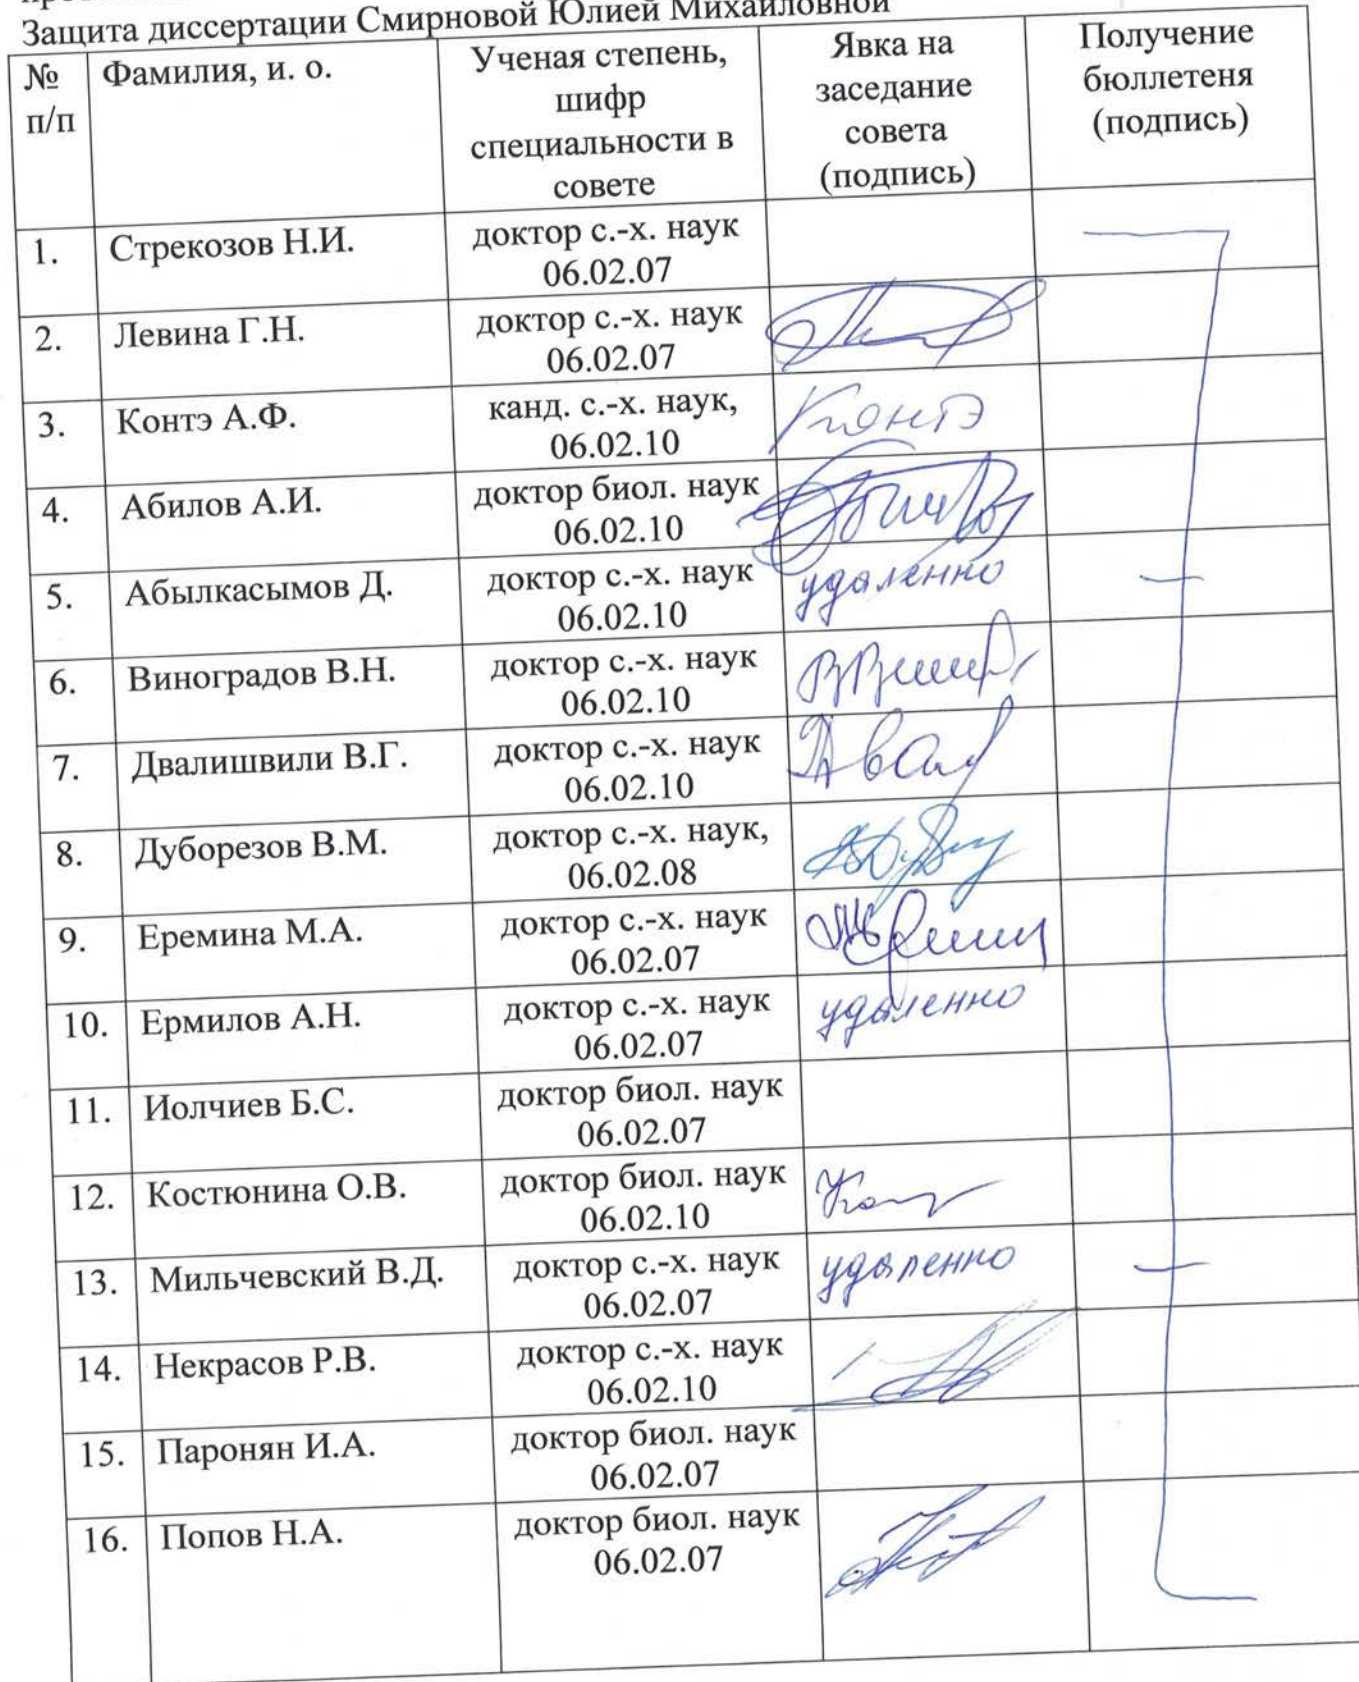 Защита диссертации Смирновой Юлией Михайловной
№ п/п Фамилия, и. о. Ученая степень, шифр специальности в совете Явка на заседание совета (подпись) Получение бюллетеня (подпись)
1. Стрекозов Н.И. доктор с.-х. наук 06.02.07
2. Левина Г.Н. доктор с.-х. наук 06.02.07
3. Контэ А.Ф. канд. с.-х. наук, 06.02.10 Контэ
4. Абилов А.И. доктор биол. наук 06.02.10
5. Абылкасымов Д. доктор с.-х. наук 06.02.10 удаленно
6. Виноградов В.Н. доктор с.-х. наук 06.02.10
7. Двалишвили В.Г. доктор с.-х. наук 06.02.10
8. Дуборезов В.М. доктор с.-х. наук, 06.02.08
9. Еремина М.А. доктор с.-х. наук 06.02.07
10. Ермилов А.Н. доктор с.-х. наук 06.02.07 удаленно
11. Иолчиев Б.С. доктор биол. наук 06.02.07
12. Костюнина О.В. доктор биол. наук 06.02.10
13. Мильчевский В.Д. доктор с.-х. наук 06.02.07 удаленно
14. Некрасов Р.В. доктор с.-х. наук 06.02.10
15. Паронян И.А. доктор биол. наук 06.02.07
16. Попов Н.А. доктор биол. наук 06.02.07